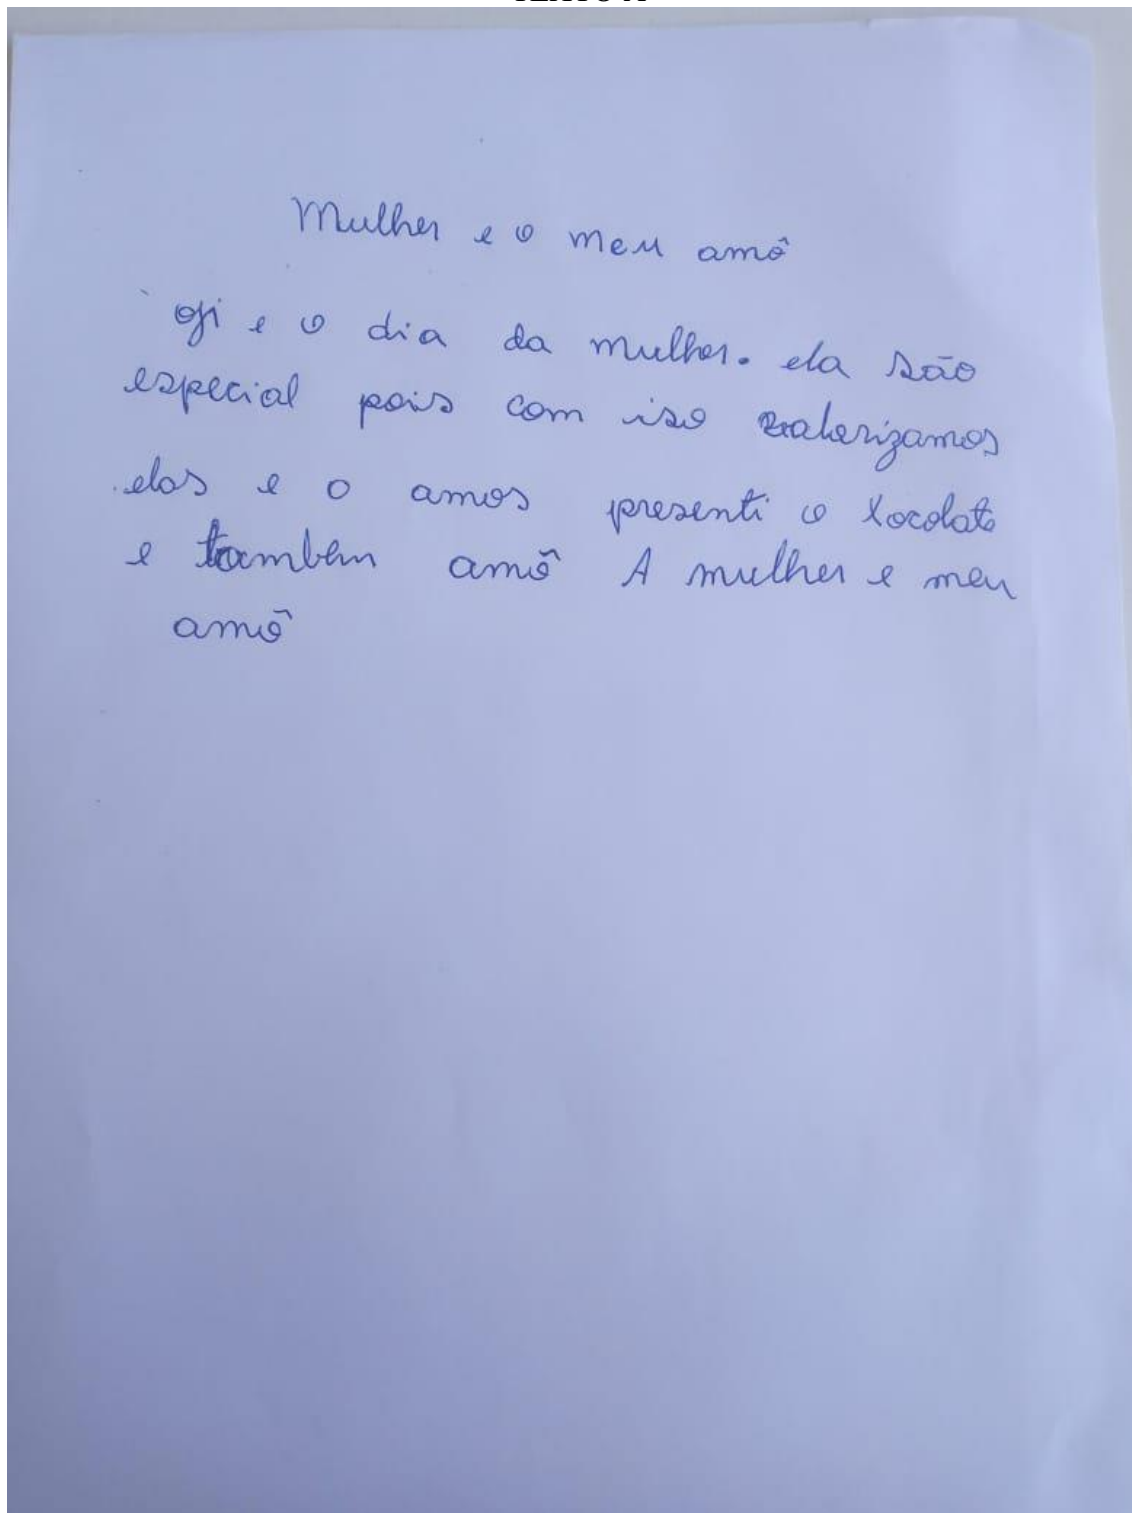 TEXTO A
Mulher e o meu amô
oji e o dia da mulher. ela são
especial pois com iso valorizamos
elas e o amos presenti o Xocolate
e tambem amô A mulher e meu
amô